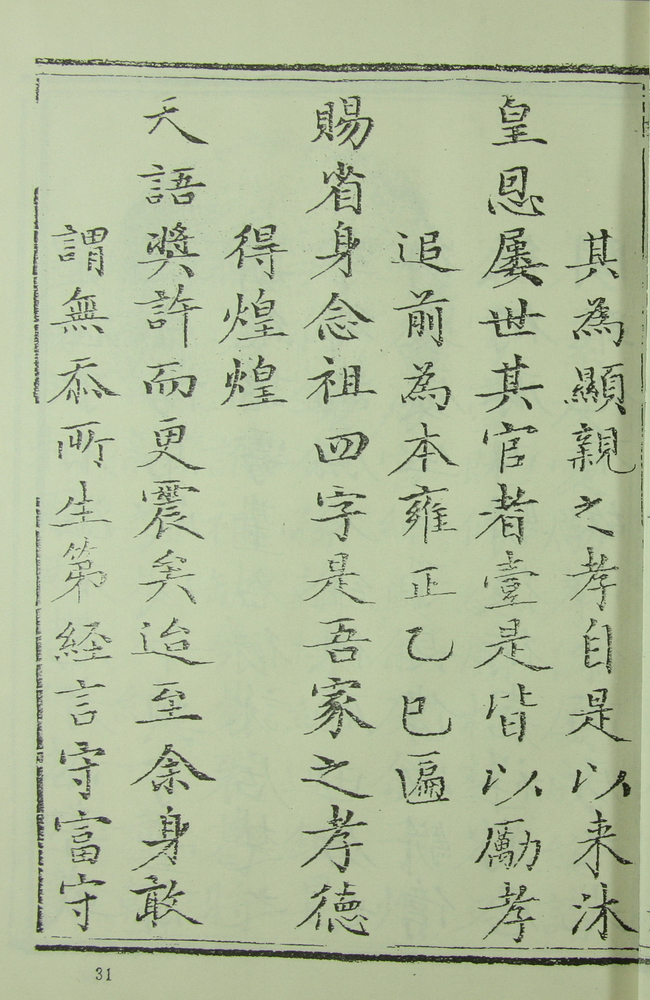 其為顯親之孝自是以来沐
皇恩屢世其官者壹是皆以勵孝
追前為本雍正乙巳遍
賜省身念祖四字是吾家之孝德
得煌煌
天語奬許而更震矣迨至余身敢
謂無忝所生第経言守富守
31